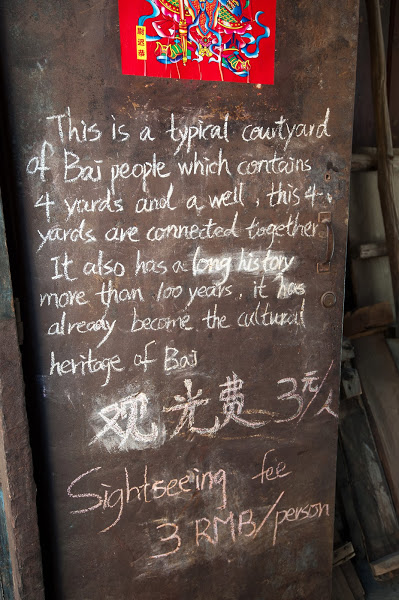 尉迟恭
This is a typical courtyard
of Bai people which contains
4 yards and a well, this 4
yards are connected together
It also has a long history
more than 100 years, it has
already become the cultural
heritage of Bai
观光费 3元/人
Sightseeing fee
3 RMB/person